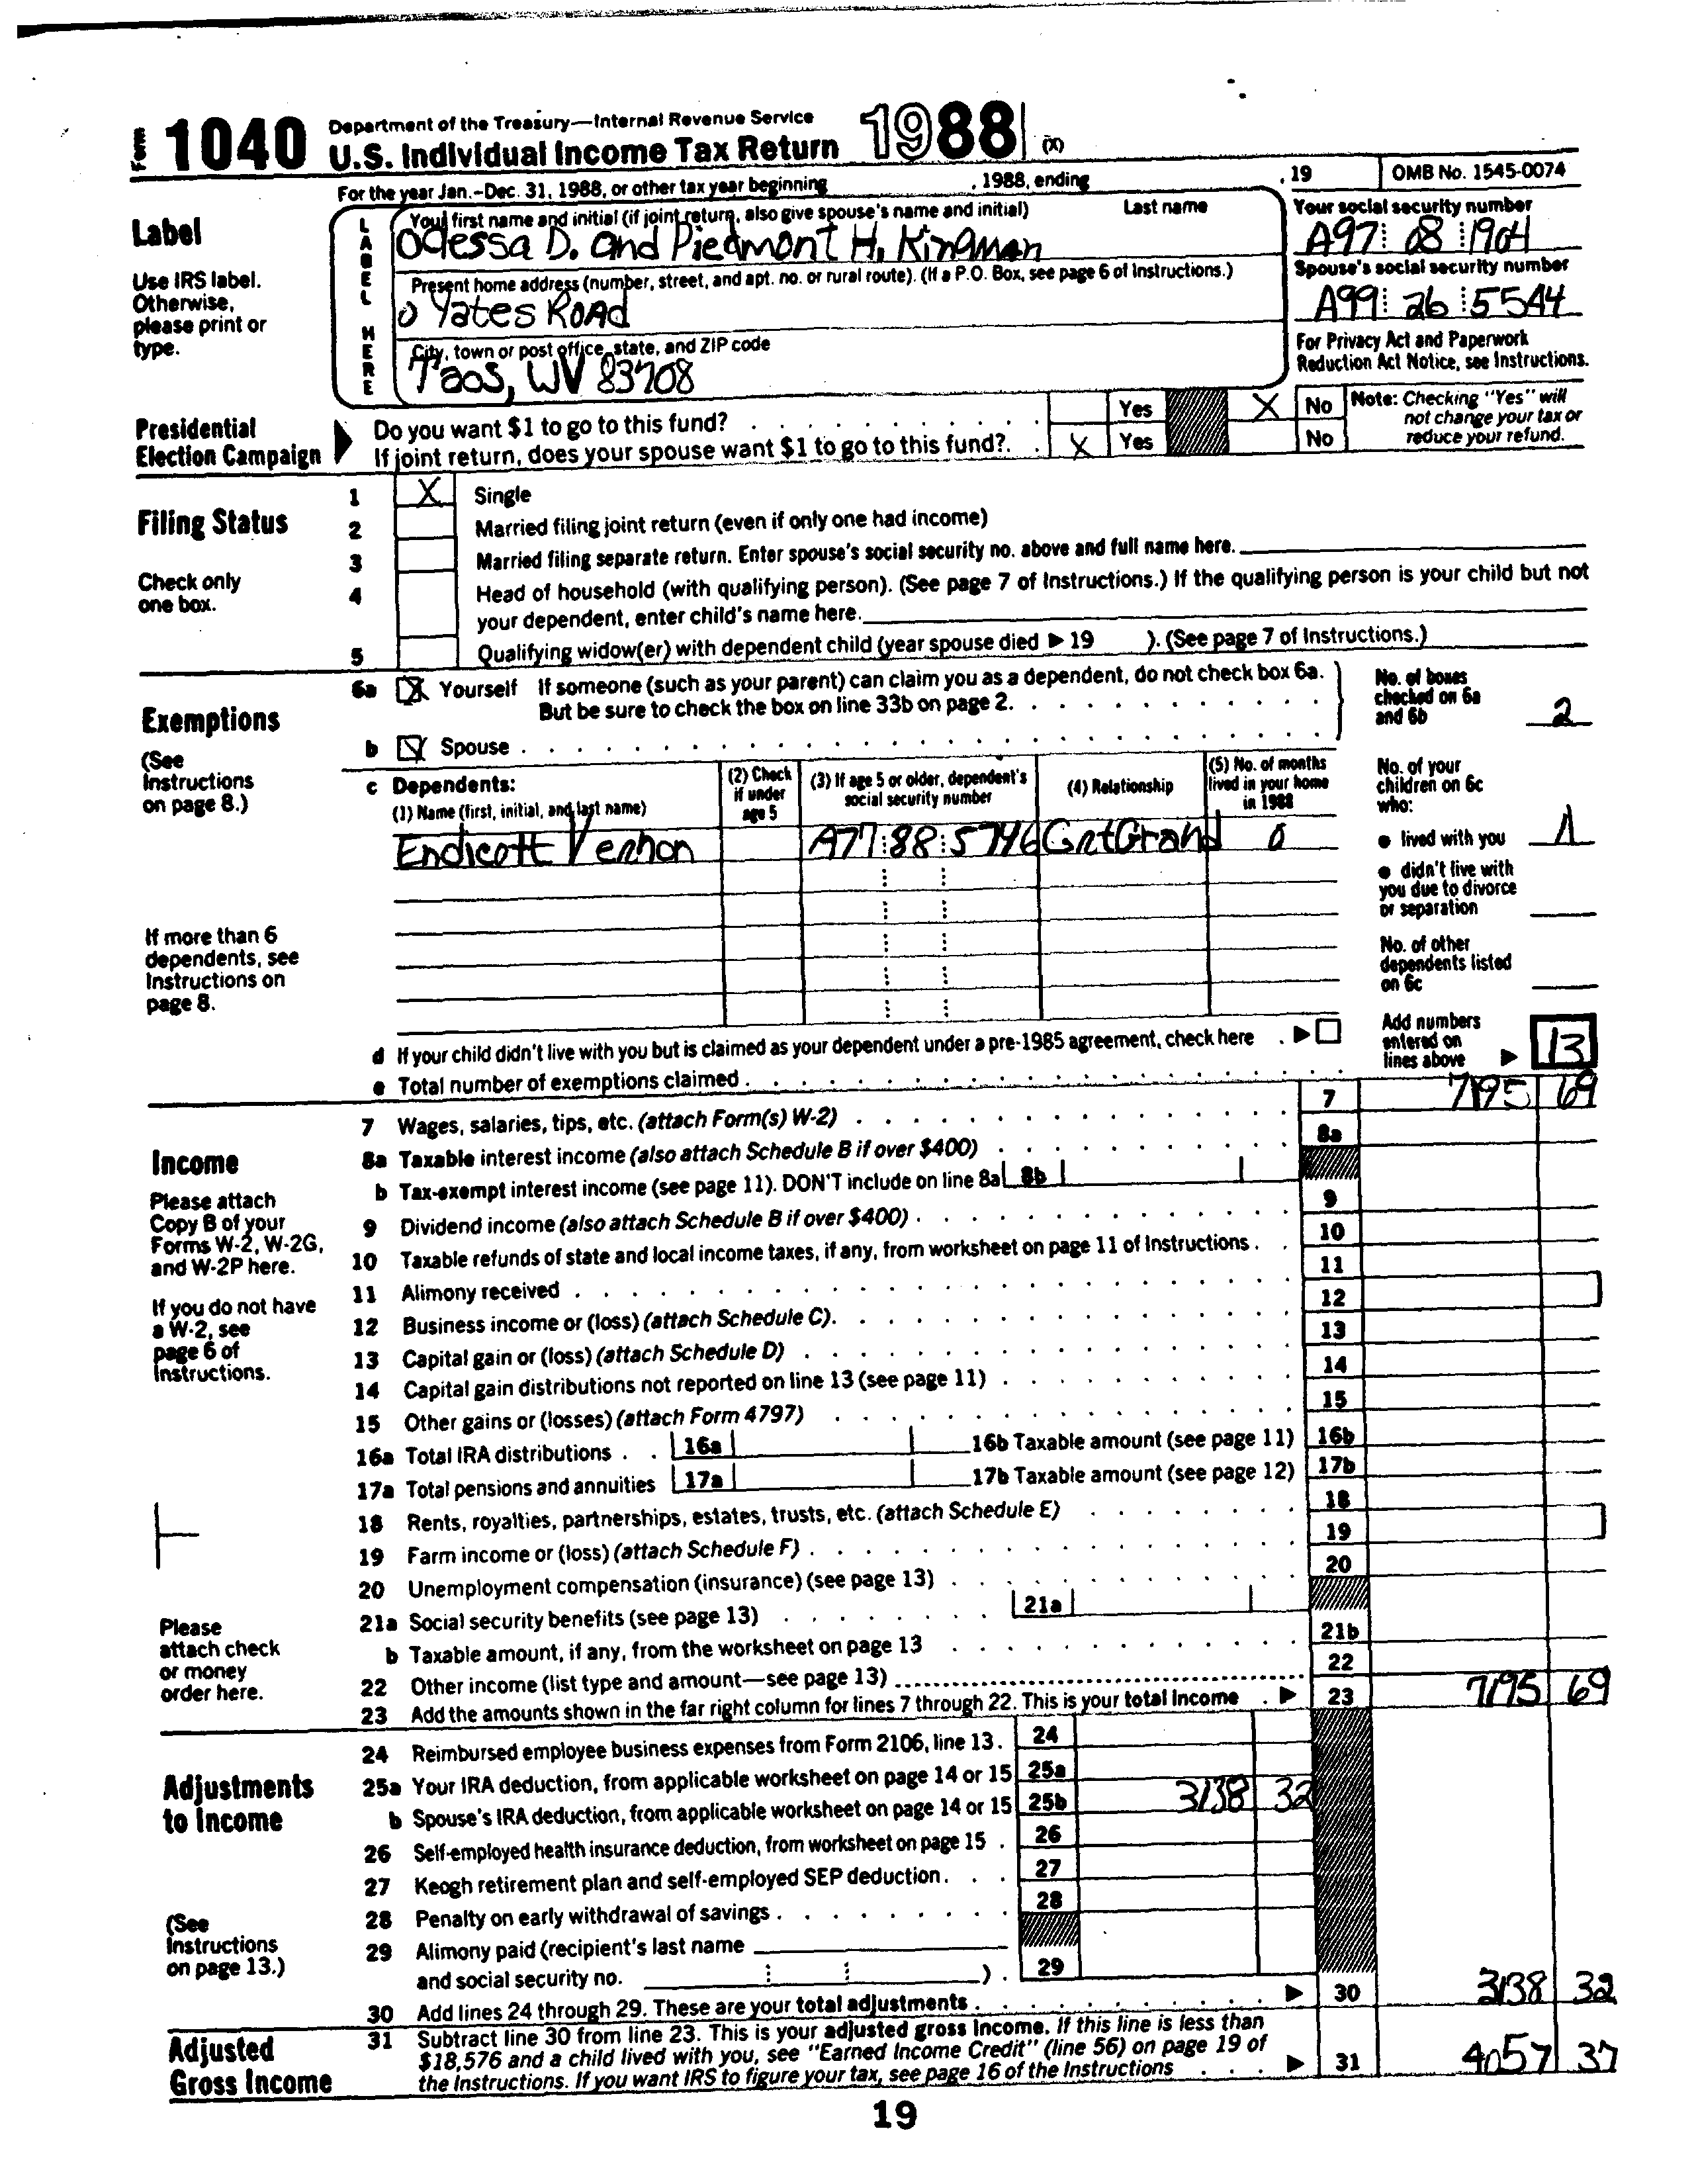 Form 1040 Department of the Treasury—Internal Revenue Service
U.S. Individual Income Tax Return 1988 (X)
For the year Jan.–Dec. 31, 1988, or other tax year beginning , 1988, ending , 19 OMB No. 1545-0074
Label
Use IRS label.
Otherwise,
please print or
type.
LABEL HERE
Your first name and initial (if joint return, also give spouse's name and initial) Last name
Odessa D. and Piedmont H. Kingman
Present home address (number, street, and apt. no. or rural route). (If a P.O. Box, see page 6 of Instructions.)
0 Yates Road
City, town or post office, state, and ZIP code
Taos, WV 83708
Your social security number
A97 08 1904
Spouse's social security number
A99 26 5544
For Privacy Act and Paperwork
Reduction Act Notice, see Instructions.
Presidential
Election Campaign
Do you want $1 to go to this fund? Yes X No
If joint return, does your spouse want $1 to go to this fund? X Yes No
Note: Checking "Yes" will
not change your tax or
reduce your refund.
Filing Status
Check only
one box.
1 X Single
2 Married filing joint return (even if only one had income)
3 Married filing separate return. Enter spouse's social security no. above and full name here.
4 Head of household (with qualifying person). (See page 7 of Instructions.) If the qualifying person is your child but not
your dependent, enter child's name here.
5 Qualifying widow(er) with dependent child (year spouse died ▶ 19 ). (See page 7 of Instructions.)
Exemptions
(See
Instructions
on page 8.)
If more than 6
dependents, see
Instructions on
page 8.
6a X Yourself If someone (such as your parent) can claim you as a dependent, do not check box 6a.
But be sure to check the box on line 33b on page 2.
b X Spouse
No. of boxes
checked on 6a
and 6b 2
c Dependents:
(1) Name (first, initial, and last name)
(2) Check
if under
age 5
(3) If age 5 or older, dependent's
social security number
(4) Relationship
(5) No. of months
lived in your home
in 1988
Endicott Vernon A77 88 5746 GrtGrand 0
No. of your
children on 6c
who:
● lived with you 1
● didn't live with
you due to divorce
or separation
No. of other
dependents listed
on 6c
Add numbers
entered on
lines above ▶ 13
d If your child didn't live with you but is claimed as your dependent under a pre-1985 agreement, check here ▶
e Total number of exemptions claimed
Income
Please attach
Copy B of your
Forms W-2, W-2G,
and W-2P here.
If you do not have
a W-2, see
page 6 of
Instructions.
Please
attach check
or money
order here.
7 Wages, salaries, tips, etc. (attach Form(s) W-2) 7 7195 69
8a Taxable interest income (also attach Schedule B if over $400) 8a
b Tax-exempt interest income (see page 11). DON'T include on line 8a 8b
9 Dividend income (also attach Schedule B if over $400) 9
10 Taxable refunds of state and local income taxes, if any, from worksheet on page 11 of Instructions 10
11 Alimony received 11
12 Business income or (loss) (attach Schedule C) 12
13 Capital gain or (loss) (attach Schedule D) 13
14 Capital gain distributions not reported on line 13 (see page 11) 14
15 Other gains or (losses) (attach Form 4797) 15
16a Total IRA distributions 16a 16b Taxable amount (see page 11) 16b
17a Total pensions and annuities 17a 17b Taxable amount (see page 12) 17b
18 Rents, royalties, partnerships, estates, trusts, etc. (attach Schedule E) 18
19 Farm income or (loss) (attach Schedule F) 19
20 Unemployment compensation (insurance) (see page 13) 20
21a Social security benefits (see page 13) 21a
b Taxable amount, if any, from the worksheet on page 13 21b
22 Other income (list type and amount—see page 13) 22
23 Add the amounts shown in the far right column for lines 7 through 22. This is your total income ▶ 23 7195 69
Adjustments
to Income
(See
Instructions
on page 13.)
24 Reimbursed employee business expenses from Form 2106, line 13. 24
25a Your IRA deduction, from applicable worksheet on page 14 or 15 25a
b Spouse's IRA deduction, from applicable worksheet on page 14 or 15 25b 3138 32
26 Self-employed health insurance deduction, from worksheet on page 15 26
27 Keogh retirement plan and self-employed SEP deduction 27
28 Penalty on early withdrawal of savings 28
29 Alimony paid (recipient's last name
and social security no. ) 29
30 Add lines 24 through 29. These are your total adjustments ▶ 30 3138 32
Adjusted
Gross Income
31 Subtract line 30 from line 23. This is your adjusted gross income. If this line is less than
$18,576 and a child lived with you, see "Earned Income Credit" (line 56) on page 19 of
the Instructions. If you want IRS to figure your tax, see page 16 of the Instructions ▶ 31 4057 37
19